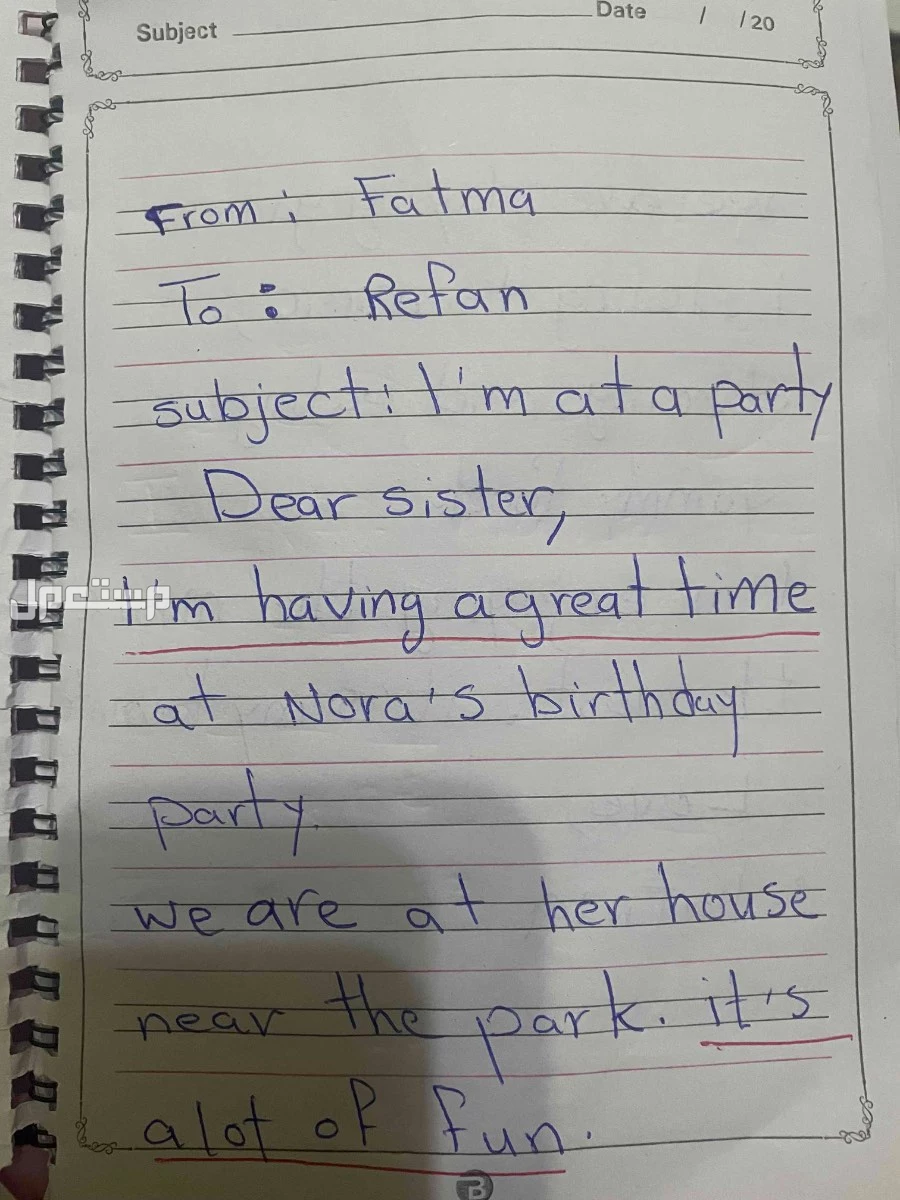 Subject Date / /20
From: Fatma
To: Refan
subject: I'm at a party
Dear sister,
مستعمل
I'm having a great time
at Nora's birthday
party.
we are at her house
near the park. it's
alot of fun.
B